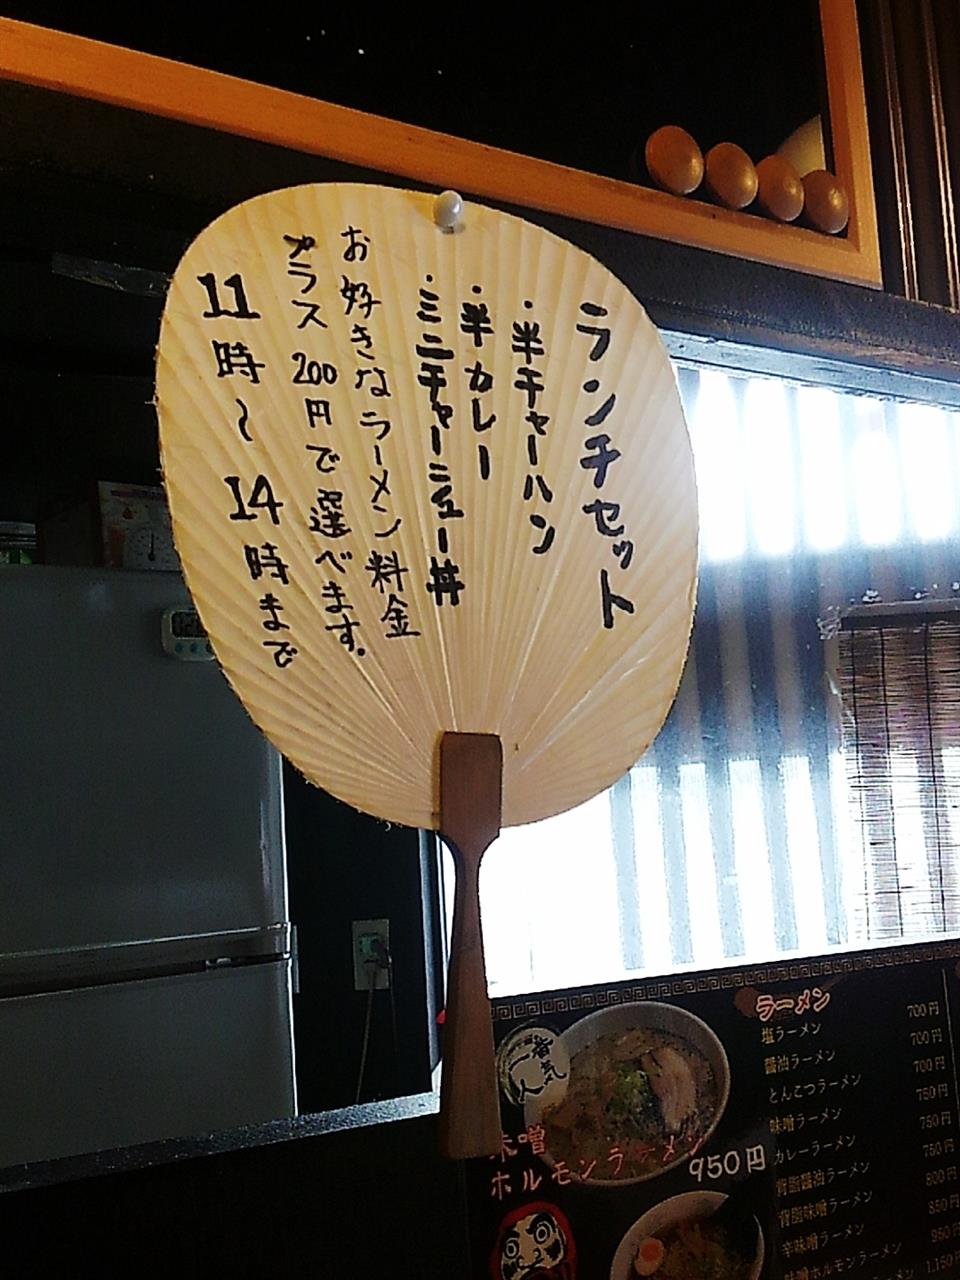 ランチセット
・半チャーハン
・半カレー
・ミニチャーシュー丼
お好きなラーメン料金
プラス200円で選べます.
11時～14時まで
一番人気
味噌
ホルモンラーメン
950円
ラーメン
塩ラーメン 700円
醤油ラーメン 700円
とんこつラーメン 700円
味噌ラーメン 750円
カレーラーメン 750円
背脂醤油ラーメン 750円
背脂味噌ラーメン 800円
辛味噌ラーメン 850円
味噌ホルモンラーメン 950円
1,150